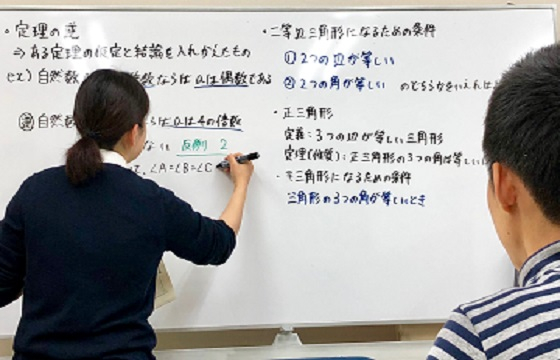 ・定理の逆
⇒ ある定理の仮定と結論を入れかえたもの
ex) 自然数 数ならば aは偶数である
逆 自然数 らば aは4の倍数
ない 反例 2
∠A=∠B=∠C
・二等辺三角形になるための条件
① 2つの辺が等しい
② 2つの角が等しい のどちらかをいえれば
・正三角形
定義：3つの辺が等しい三角形
定理(性質)：正三角形の3つの角は等しい
・正三角形になるための条件
三角形の3つの角が等しいとき